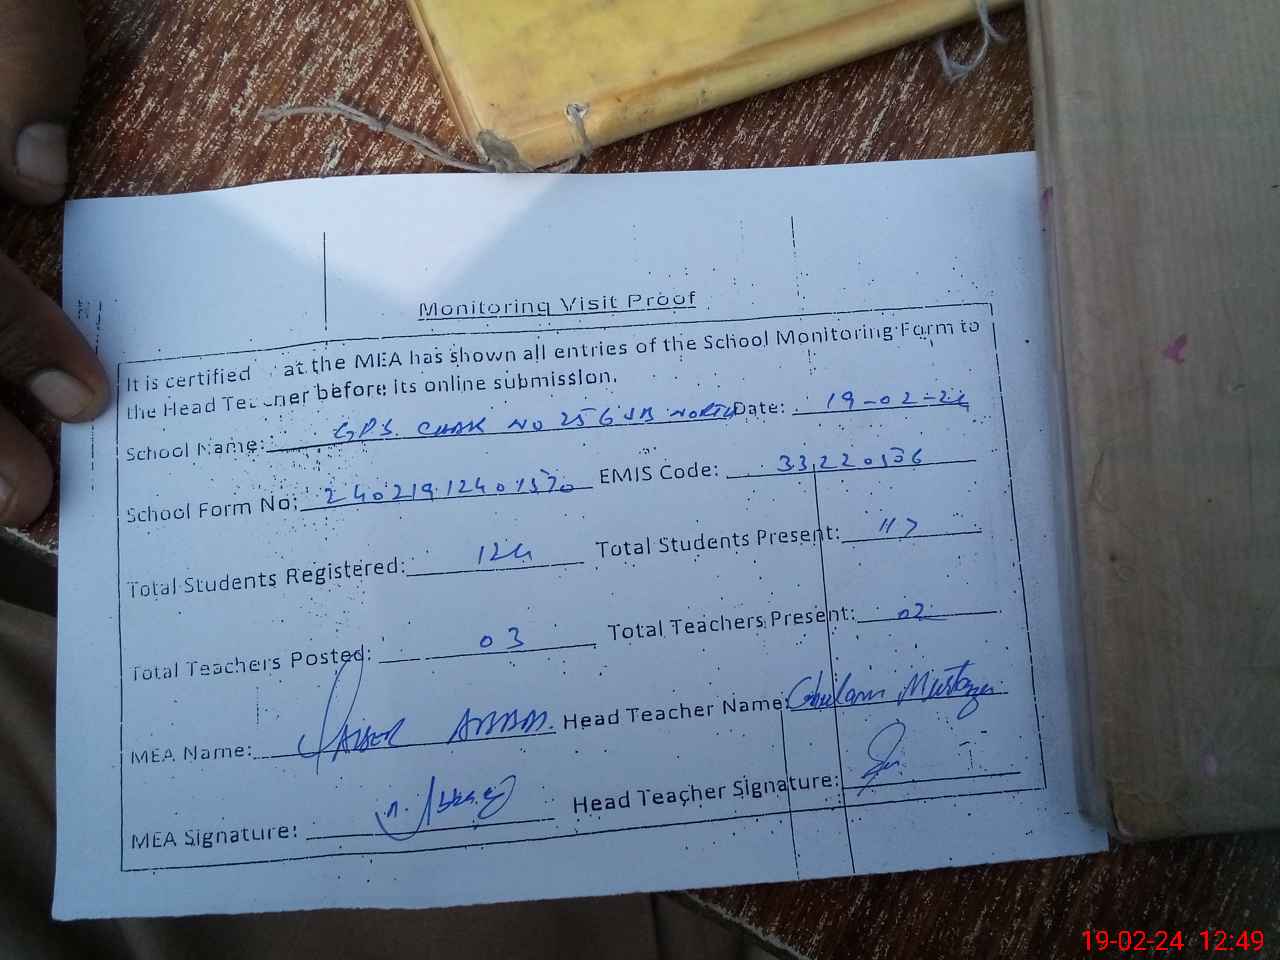 Monitoring Visit Proof
It is certified at the MEA has shown all entries of the School Monitoring Form to
the Head Teacher before its online submission.
School Name: GPS. CHAK NO 256 JB NORTH Date: 19-02-24
School Form No: EMIS Code: 33220136
Total Students Registered: 124 Total Students Present: 117
Total Teachers Posted: 03 Total Teachers Present: 02
MEA Name: Head Teacher Name: Ghulam Mustafa
MEA Signature: Head Teacher Signature:
19-02-24 12:49